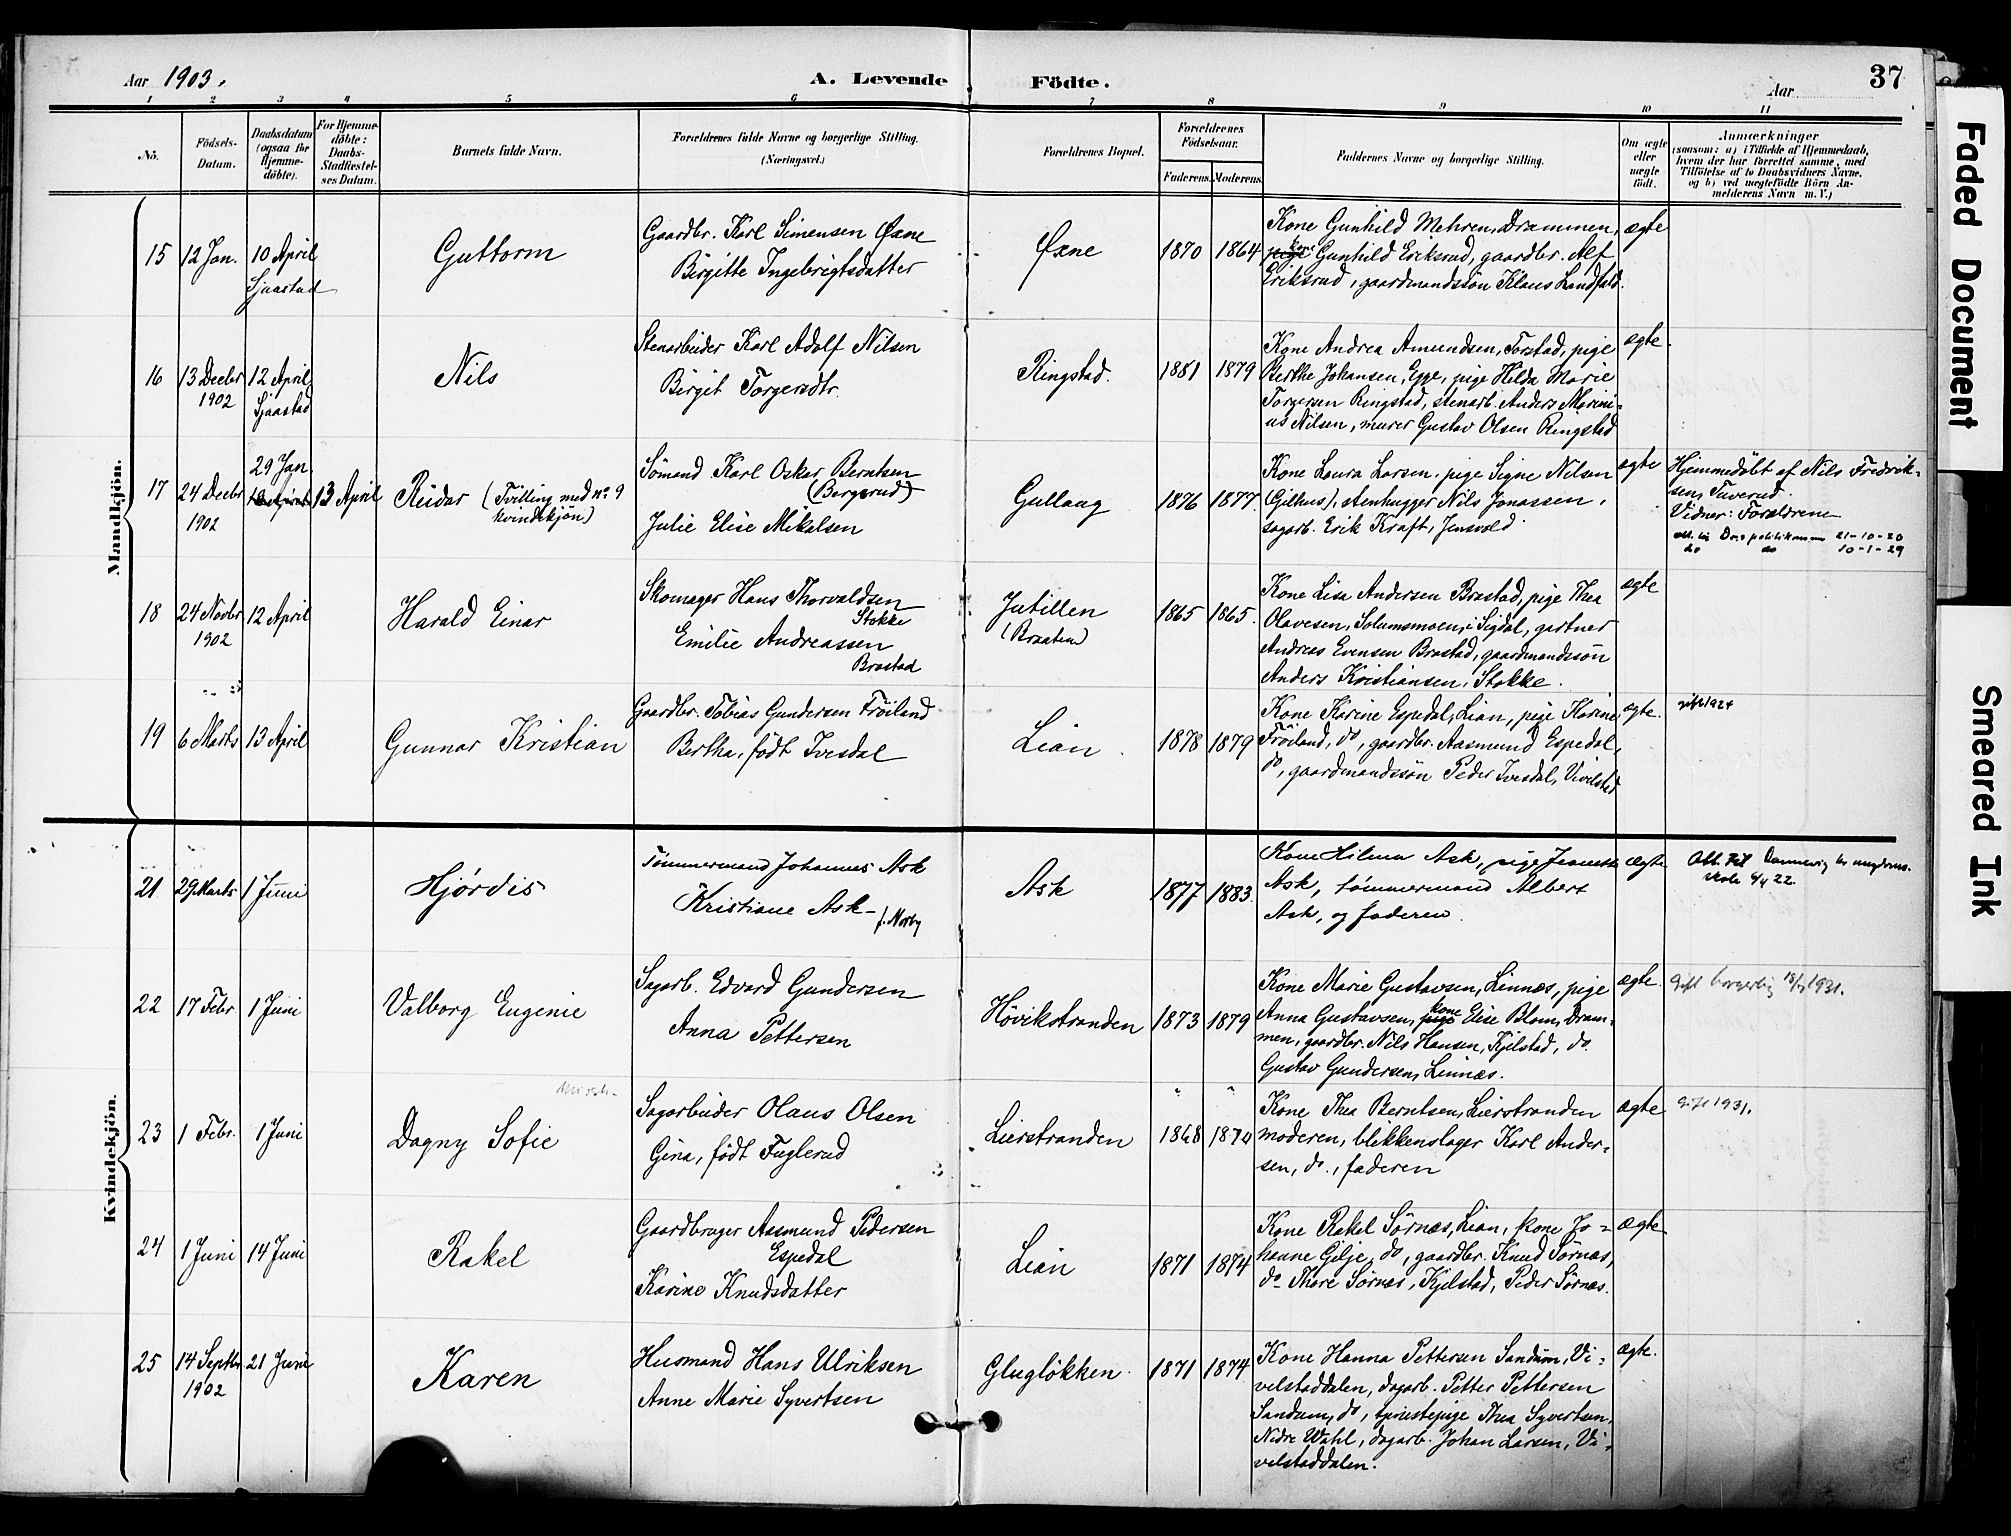 Aar 1903.
A. Levende Födte.
Aar
37
1 2 3 4 5 6 7 8 9 10 11
No.
Födsels-
Datum.
Daabsdatum
(ogsaa for
Hjemme-
döbte).
For Hjemme-
döbte:
Daabs-
Stadfæstel-
ses Datum.
Barnets fulde Navn.
Forældrenes fulde Navne og borgerlige Stilling.
(Næringsvei.)
Forældrenes Bopæl.
Forældrenes
Födselsaar.
Faderens. Moderens.
Faddernes Navne og borgerlige Stilling.
Om ægte
eller
uægte
födt.
Anmærkninger
(saasom: a) i Tilfælde af Hjemmedaab,
hvem der har forrettet samme, med
Tilföielse af to Daabsvidners Navne.
og b) ved uægtefödte Börn An-
melderens Navn m.V.)
Mandkjön.
15
12 Jan.
10 April
Sjaastad
Guttorm
Gaardbr. Karl Simensen Øxne
Birgitte Ingebrigtsdatter
Øxne
1870
1864
Kone Gunhild Mehren, Drammen,
pige kone Gunhild Eriksrud, gaardbr. Alf
Eriksrud, gaardmandssøn Klaus Landfald.
ægte
16
13 Decbr
1902
12 April
Sjaastad
Nils
Stenarbeider Karl Adolf Nilsen
Birgit Torgersdtr.
Ringstad.
1881
1879
Kone Andrea Amundsen, Torstad, pige
Berthe Johansen, Egge, pige Hilda Marie
Torgersen Ringstad, stenarb. Anders Marini=
us Nilsen, murer Gustav Olsen Ringstad
ægte.
17
24 Decbr
1902
29 Jan.
13 April
Reidar (Tvilling med nº 9
kvindekjøn)
Sømand Karl Oskar Berntsen
(Bergerud)
Julie Elise Mikelsen
Gullaug
1876
1877.
Kone Laura Larsen, pige Signe Nilsen
(Gilhus), stenhugger Nils Jonassen,
sagarb. Erik Kraft, Jensvold
ægte
Hjemmedøbt af Nils Fredrik-
sen, Tuverud.
Vidner: Forældrene
21-10-20
do do 10-1-29
18
24 Novbr
1902
12 April
Harald Einar
Skomager Hans Thorvaldsen
Stokke
Emilie Andreassen
Brastad
Jutillen
(Braaten)
1865
1865.
Kone Lisa Andersen Brastad, pige Thea
Olavesen, Solumsmoen, i Sigdal, gartner
Andreas Evensen Brastad, gaardmandssøn
Anders Kristiansen, Stokke.
ægte
19
6 Marts
13 April
Gunnar Kristian
Gaardbr. Tobias Gundersen Frøiland
Bertha, født Ivesdal
Lian.
1878
1879
Kone Karine Espedal, Lian, pige Karine
Frøiland, do, gaardbr. Aasmund Espedal,
do, gaardmandssøn Peder Ivesdal, Vivelstad
ægte.
gift 1924
Kvindekjön.
21
29 Marts
1 Juni
Hjørdis
Tømmermand Johannes Ask
Kristiane Ask
f. Norby
Ask
1877
1883.
Kone Hilma Ask, pige
Ask, tømmermand Albert
Ask, og faderen.
ægte
Att. til
4/4 22.
22
17 Febr.
1 Juni
Valborg Eugenie
Sagarb. Edvard Gundersen
Anna Pettersen
Høvikstranden
1873
1879
Kone Marie Gustavsen, Linnæs, pige
Anna Gustavsen, pige kone Elise Blom, Dram-
men, gaardbr. Nils Hansen, Kjelstad, do.
Gustav Gundersen, Linnæs.
ægte.
Gift borgerlig 1931.
23
1 Febr.
1 Juni
Dagny Sofie
Sagarbeider Olaus Olsen
Gina, født Fuglerud
Lierstranden
1868
1870
Kone Thea Berntsen, Lierstranden
moderen, blikkenslager Karl Ander-
sen, do., faderen
ægte
Gift 1931.
24
1 Juni
14 Juni
Rakel
Gaardbruger Aasmund Pedersen
Espedal
Karine Knudsdatter
Lian
1871
1874
Kone Rakel Sørnæs, Lian, kone Jo=
hanne Gilje, do, gaardbr. Knud Sørnæs,
do Thore Sørnæs, Kjelstad, Peder Sørnæs.
ægte
25
14 Septbr
1902
21 Juni
Karen
Husmand Hans Ulriksen
Anne Marie Syvertsen
Glugløkken.
1871
1874
Kone Hanna Pettersen Sandum, Vi=
velstaddalen, dagarb. Petter Pettersen
Sandum, do, tjenestepige Thea Syvertsen,
Nedre Wahl, dagarb. Johan Larsen, Vi-
velstaddalen.
ægte.
Faded Document
Smeared Ink